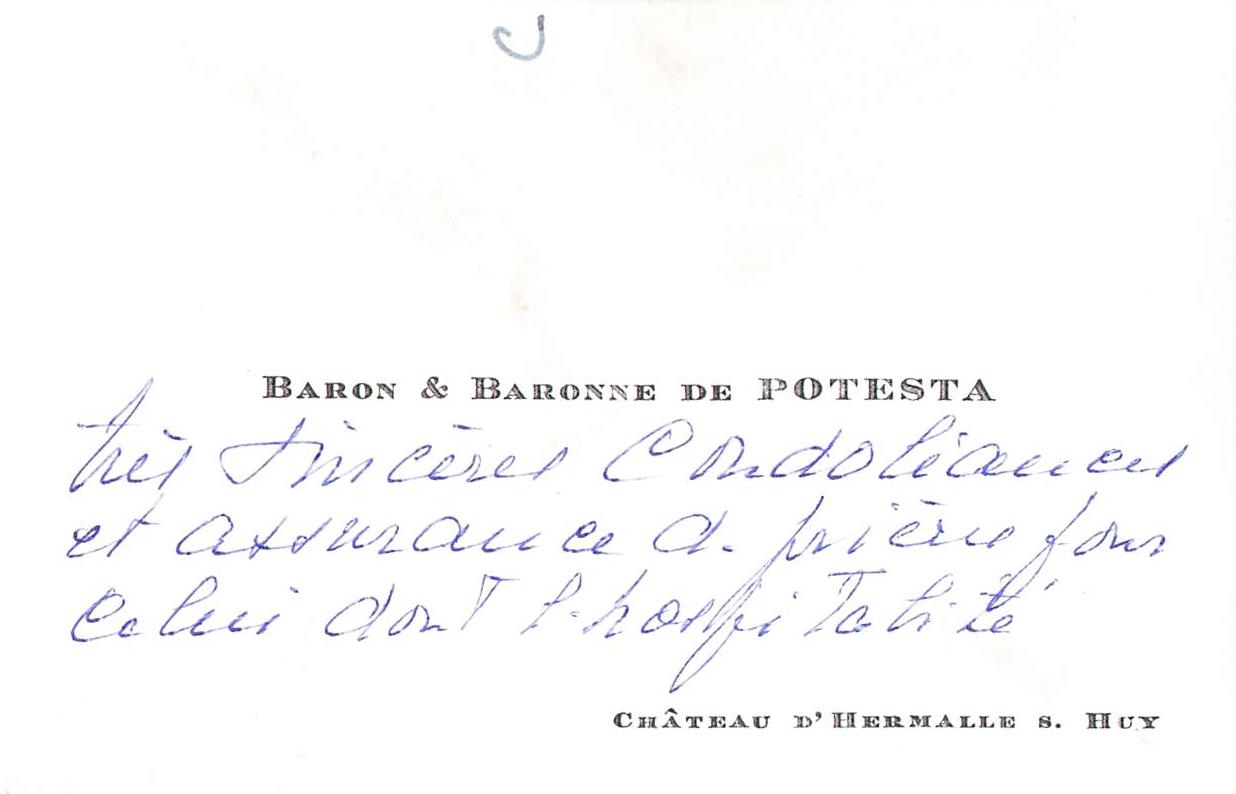 BARON & BARONNE DE POTESTA
très sincères Condoléances
et assurance de prières pour
celui dont l'hospitalité
CHÂTEAU D'HERMALLE S. HUY